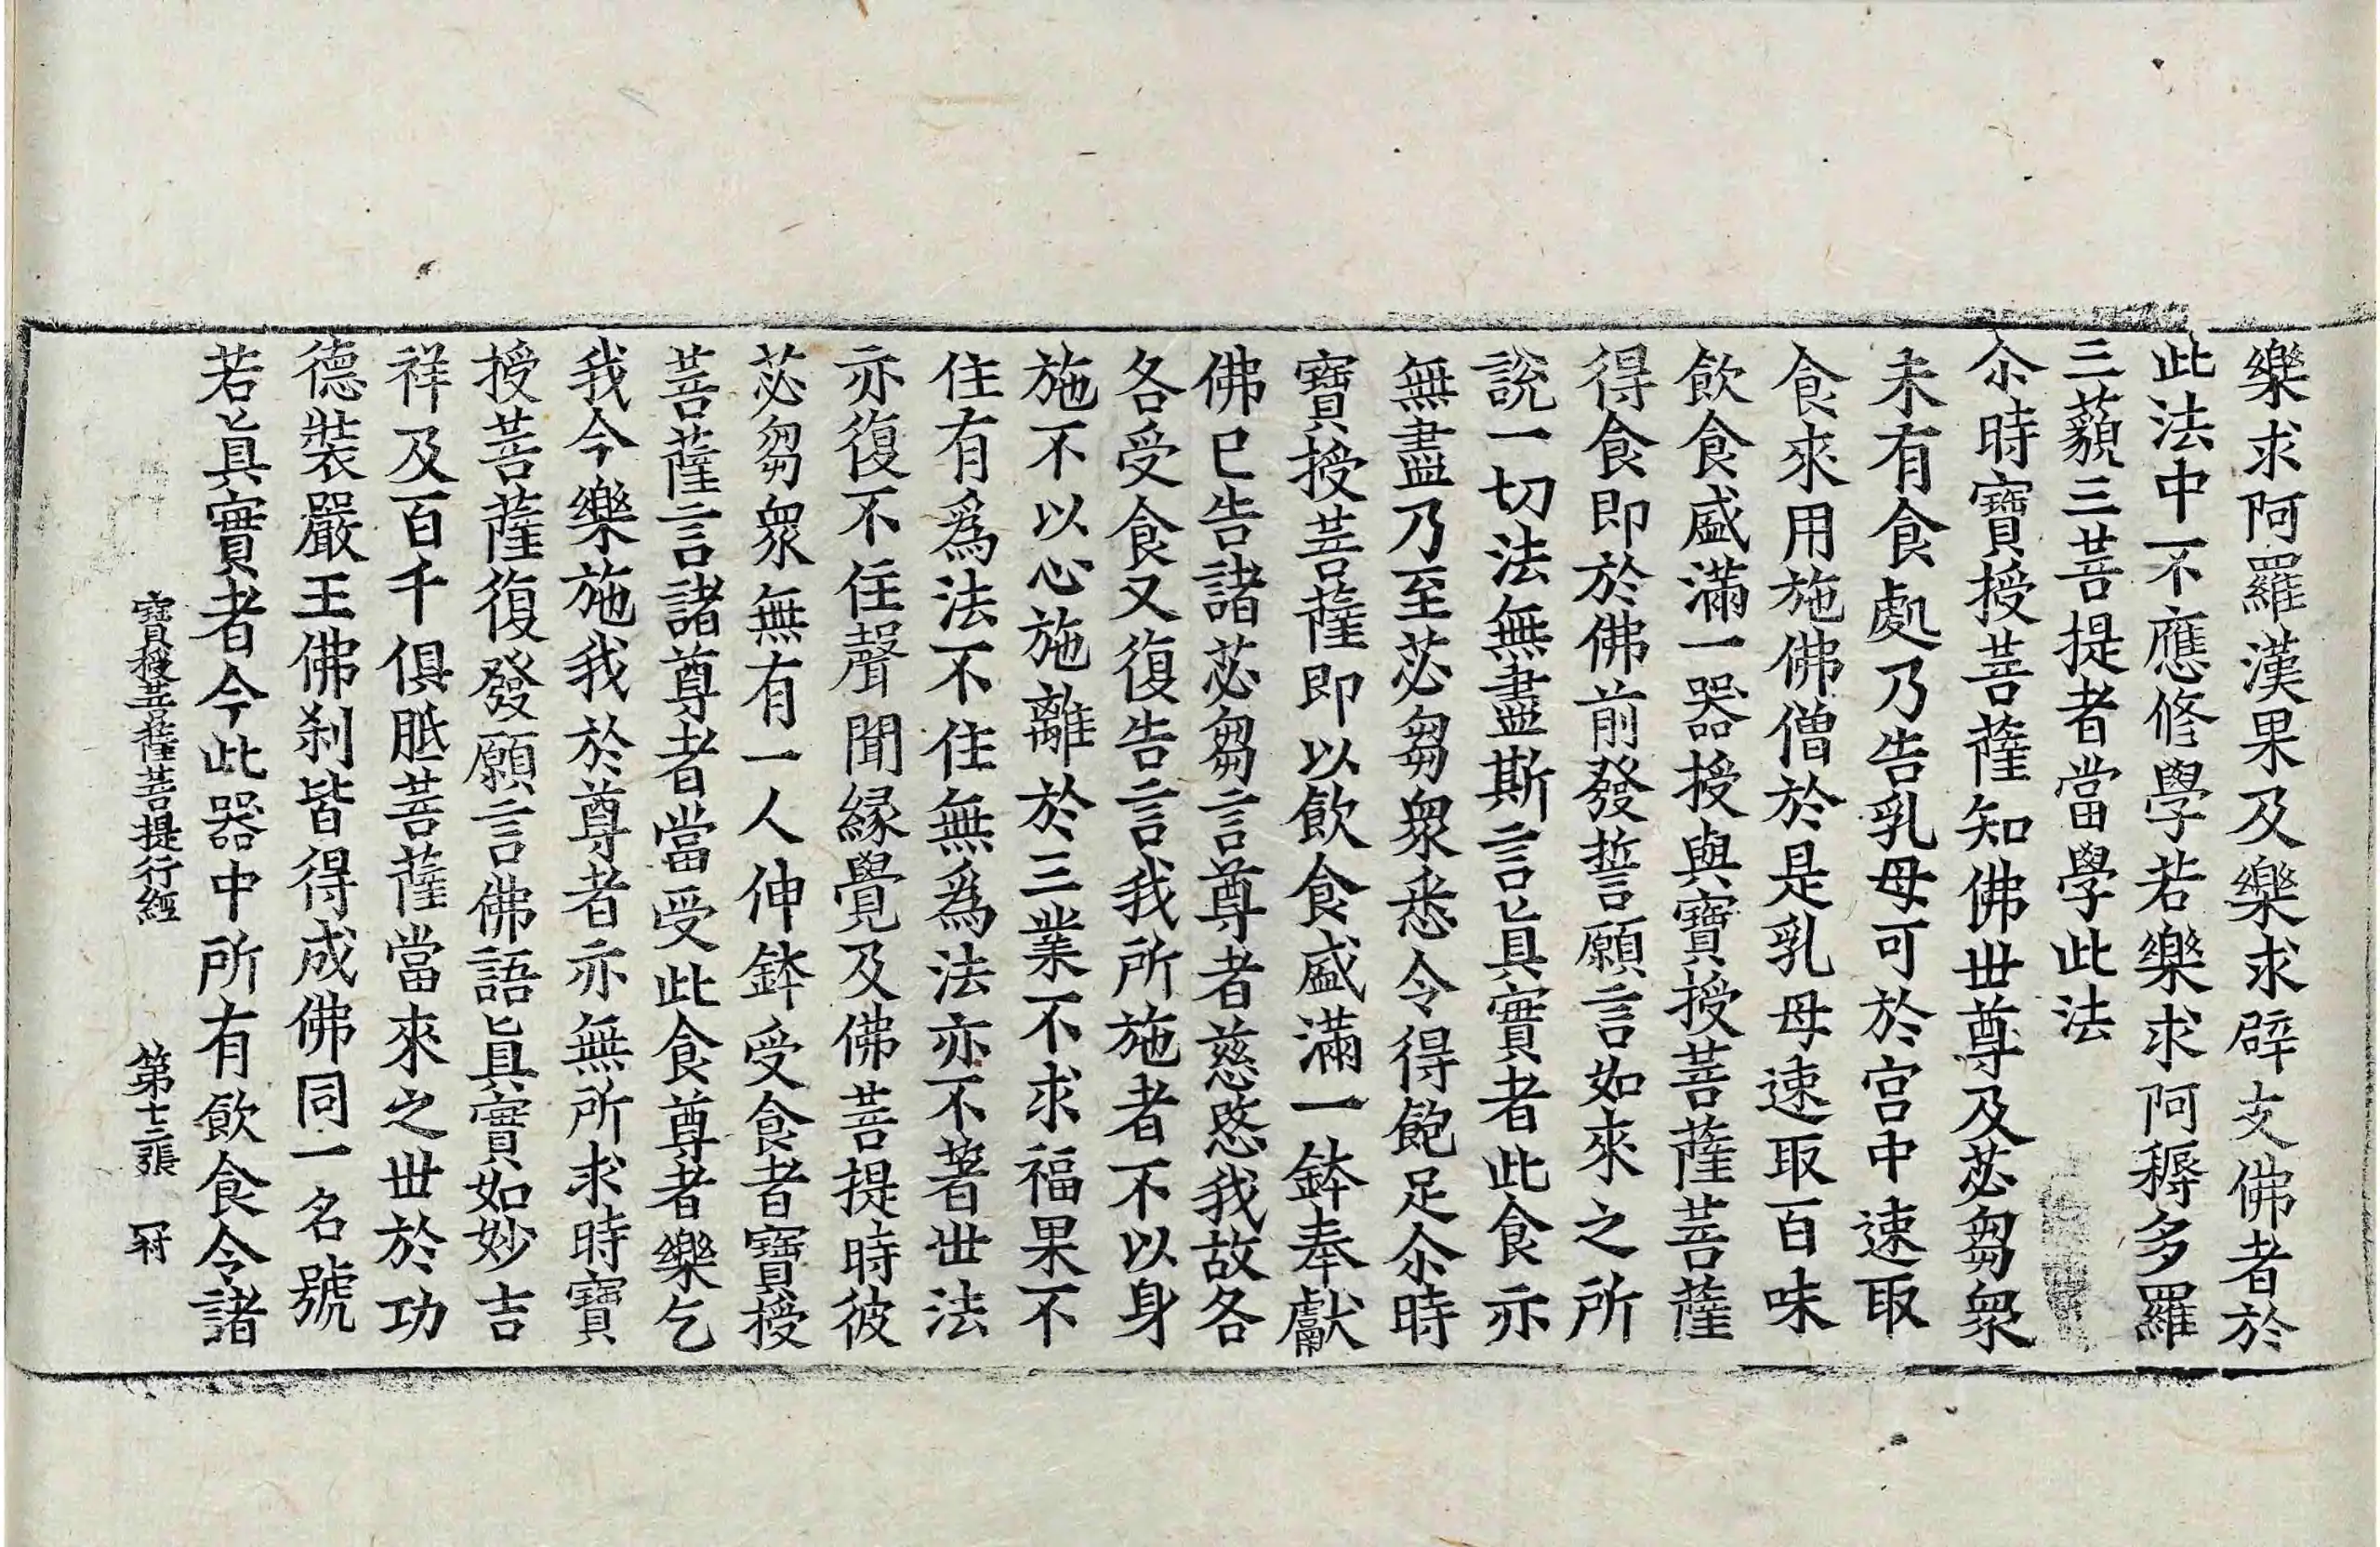 樂求阿羅漢果及樂求辟支佛者於
此法中不應修學若樂求阿耨多羅
三藐三菩提者當學此法
尒時寶授菩薩知佛世尊及苾芻衆
未有食處乃告乳母可於宮中速取
食來用施佛僧於是乳母速取百味
飲食盛滿一器授與寶授菩薩菩薩
得食即於佛前發誓願言如來之所
說一切法無盡斯言眞實者此食亦
無盡乃至苾芻衆悉令得飽足尒時
寶授菩薩即以飲食盛滿一鉢奉獻
佛已告諸苾芻言尊者慈愍我故各
各受食又復告言我所施者不以身
施不以心施離於三業不求福果不
住有爲法不住無爲法亦不著世法
亦復不住聲聞緣覺及佛菩提時彼
苾芻衆無有一人伸鉢受食者寶授
菩薩言諸尊者當受此食尊者樂乞
我今樂施我於尊者亦無所求時寶
授菩薩復發願言佛語眞實如妙吉
祥及百千俱胝菩薩當來之世於功
德裝嚴王佛刹皆得成佛同一名號
若眞實者今此器中所有飲食令諸
寶授菩薩菩提行經 第十三張 冠